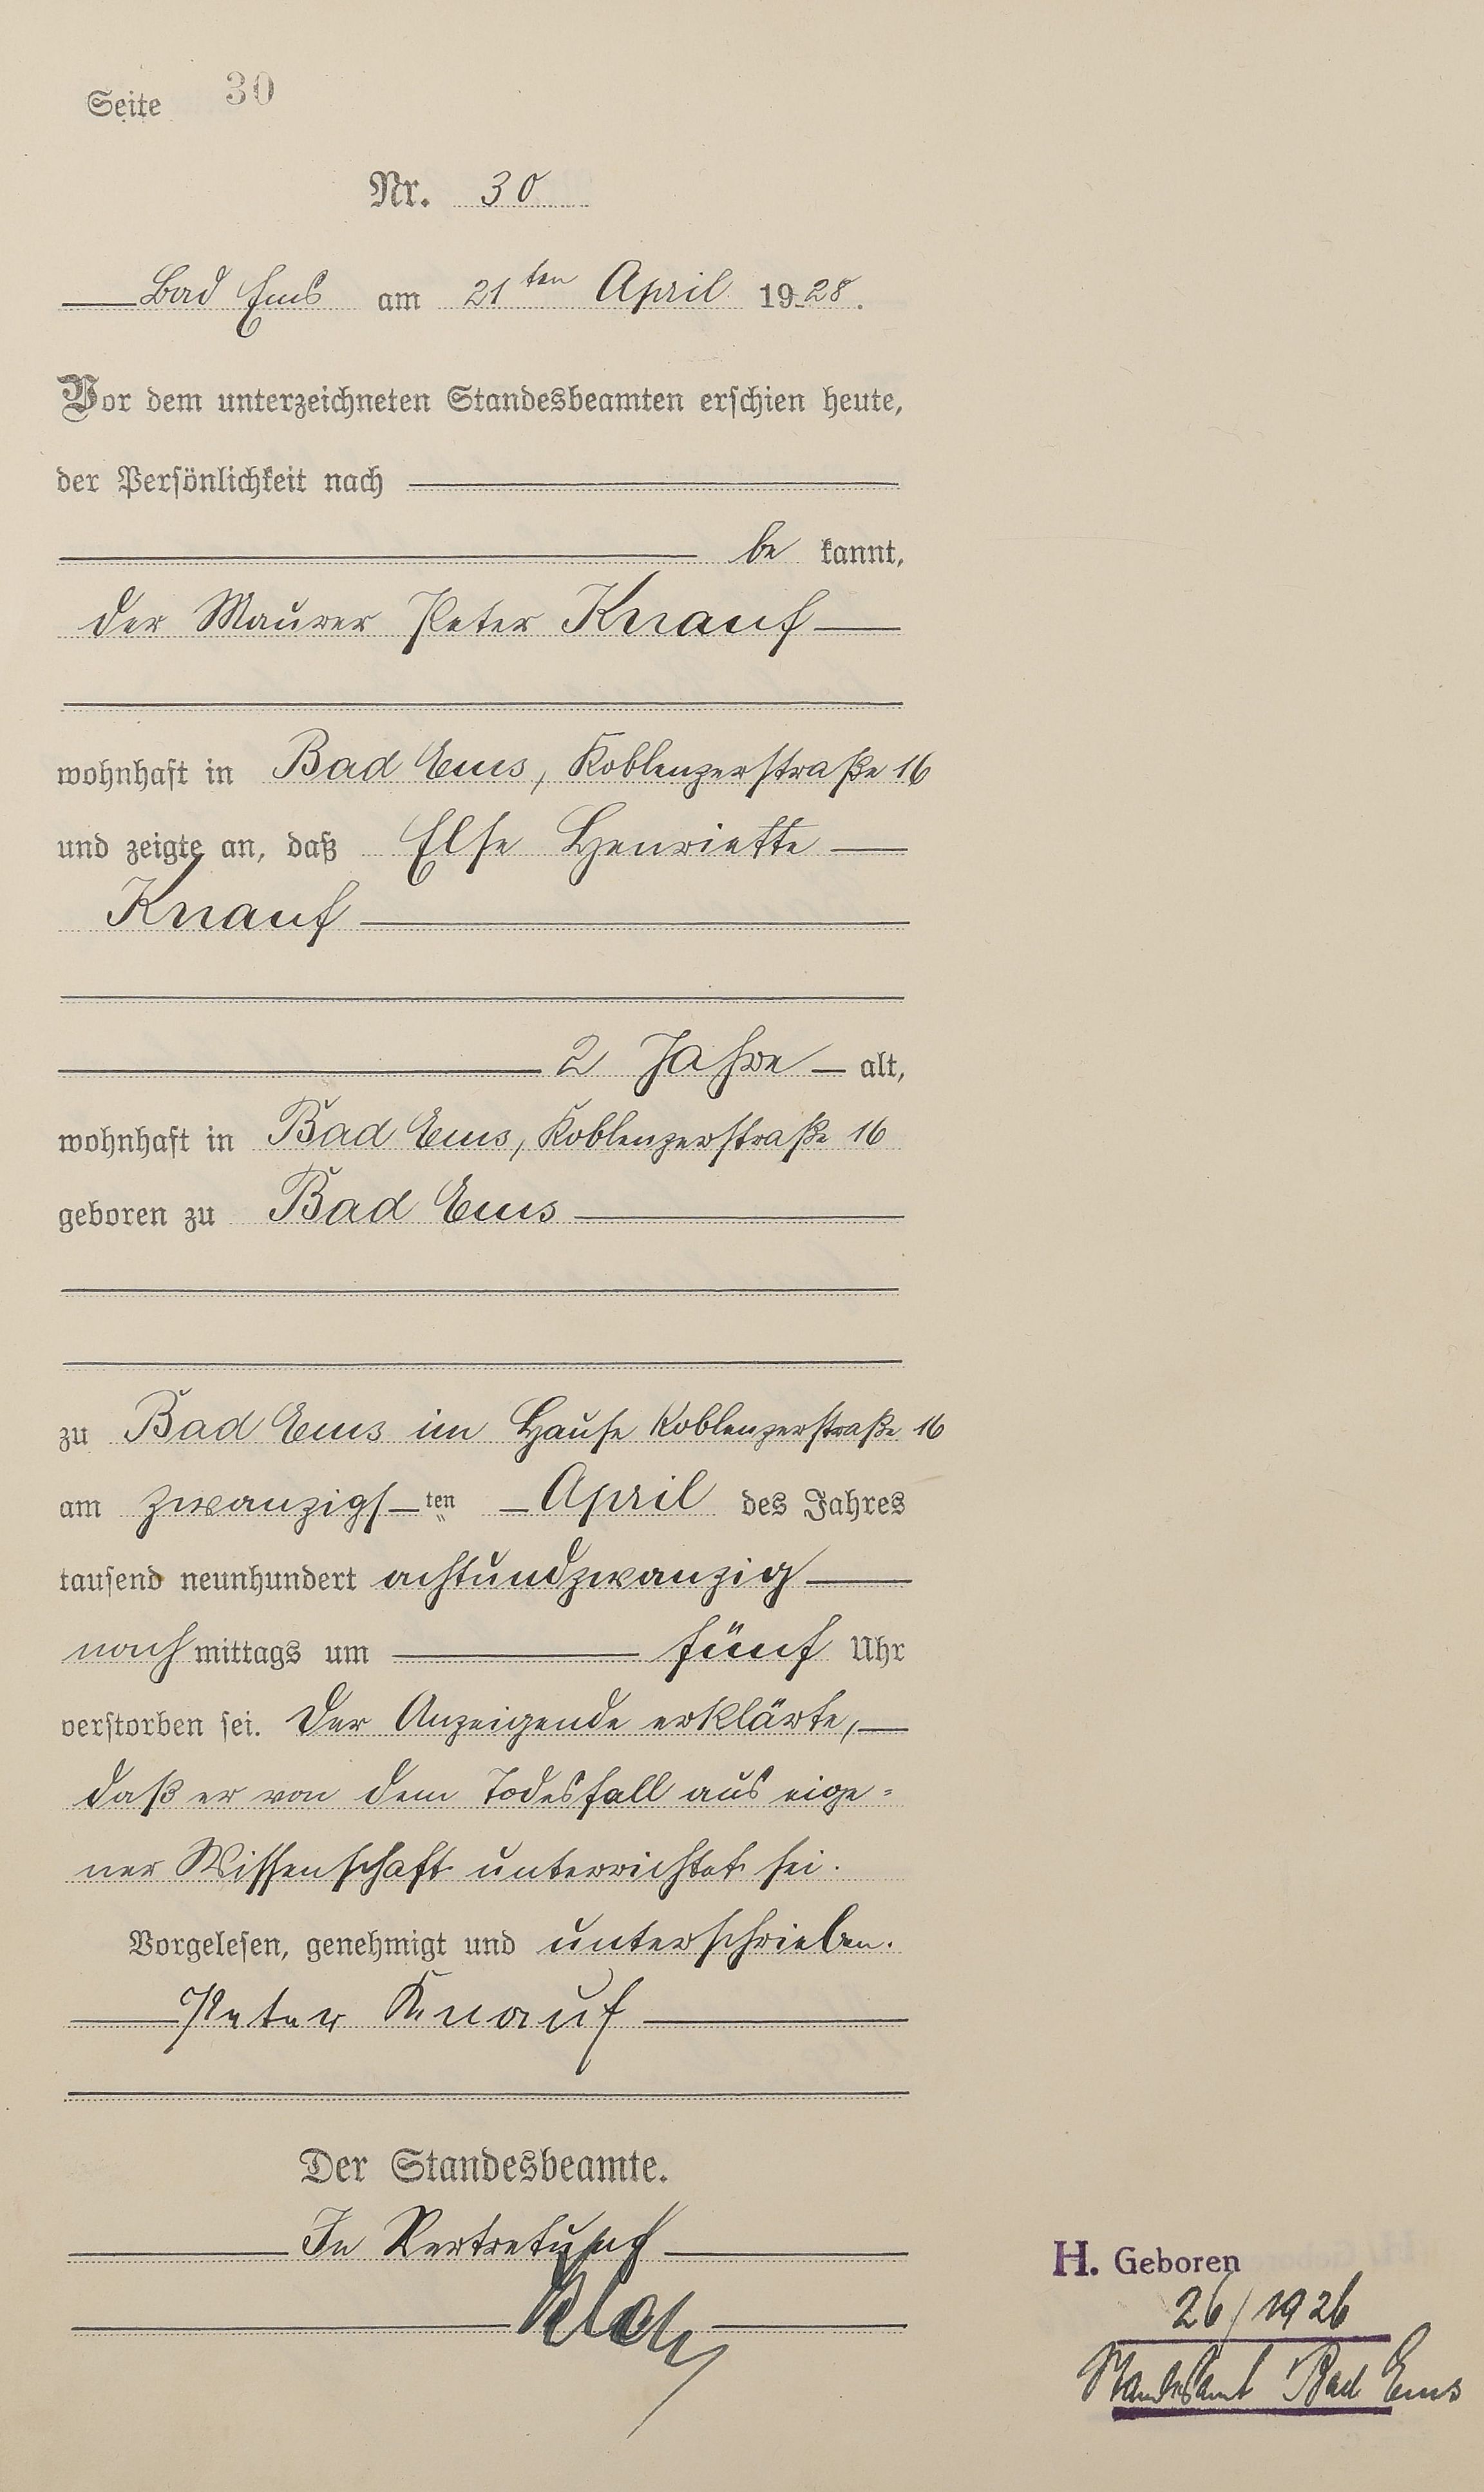 Seite 30
Nr. 30
Bad Ems am 21ten April 1928.
Vor dem unterzeichneten Standesbeamten erschien heute,
der Persönlichkeit nach
be kannt,
der Maurer Peter Knauf
wohnhaft in Bad Ems, Koblenzerstraße 16
und zeigte an, daß Else Henriette
Knauf
2 Jahre alt,
wohnhaft in Bad Ems, Koblenzerstraße 16
geboren zu Bad Ems
zu Bad Ems im Hause Koblenzerstraße 16
am zwanzigsten April des Jahres
tausend neunhundert achtundzwanzig
nachmittags um fünf Uhr
verstorben sei. Der Anzeigende erklärte,
daß er von dem Todesfall aus eige=
ner Wissenschaft unterrichtet sei.
Vorgelesen, genehmigt und unterschrieben.
Peter Knauf
Der Standesbeamte.
In Vertretung
H. Geboren
26/1926
Standesamt Bad Ems